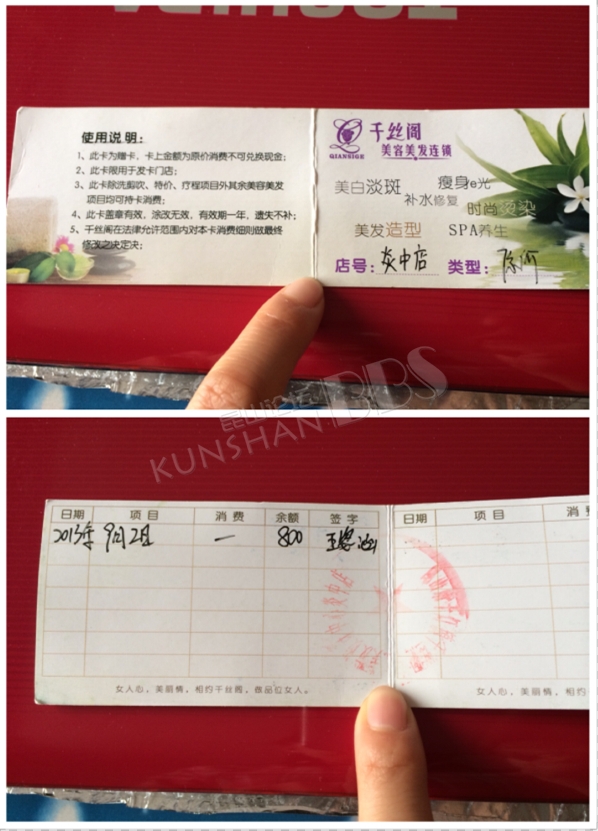 使用说明：
1、此卡为赠卡，卡上金额为原价消费不可兑换现金；
2、此卡限用于发卡门店；
3、此卡除洗剪吹、特价、疗程项目外其余美容美发
项目均可持卡消费；
4、此卡盖章有效，涂改无效，有效期一年，遗失不补；
5、千丝阁在法律允许范围内对本卡消费细则做最终
修改之决定决；
千丝阁
QIANSIGE
美容美发连锁
美白淡斑 瘦身e光
补水修复 时尚烫染
美发造型 SPA养生
店号： 类型：
昆山论坛
KUNSHAN BBS
日期 项目 消费 余额 签字 日期 项目 消费
2013年 9月2日 一 800
女人心，美丽情，相约千丝阁，做品位女人。 女人心，美丽情，相约千丝阁，